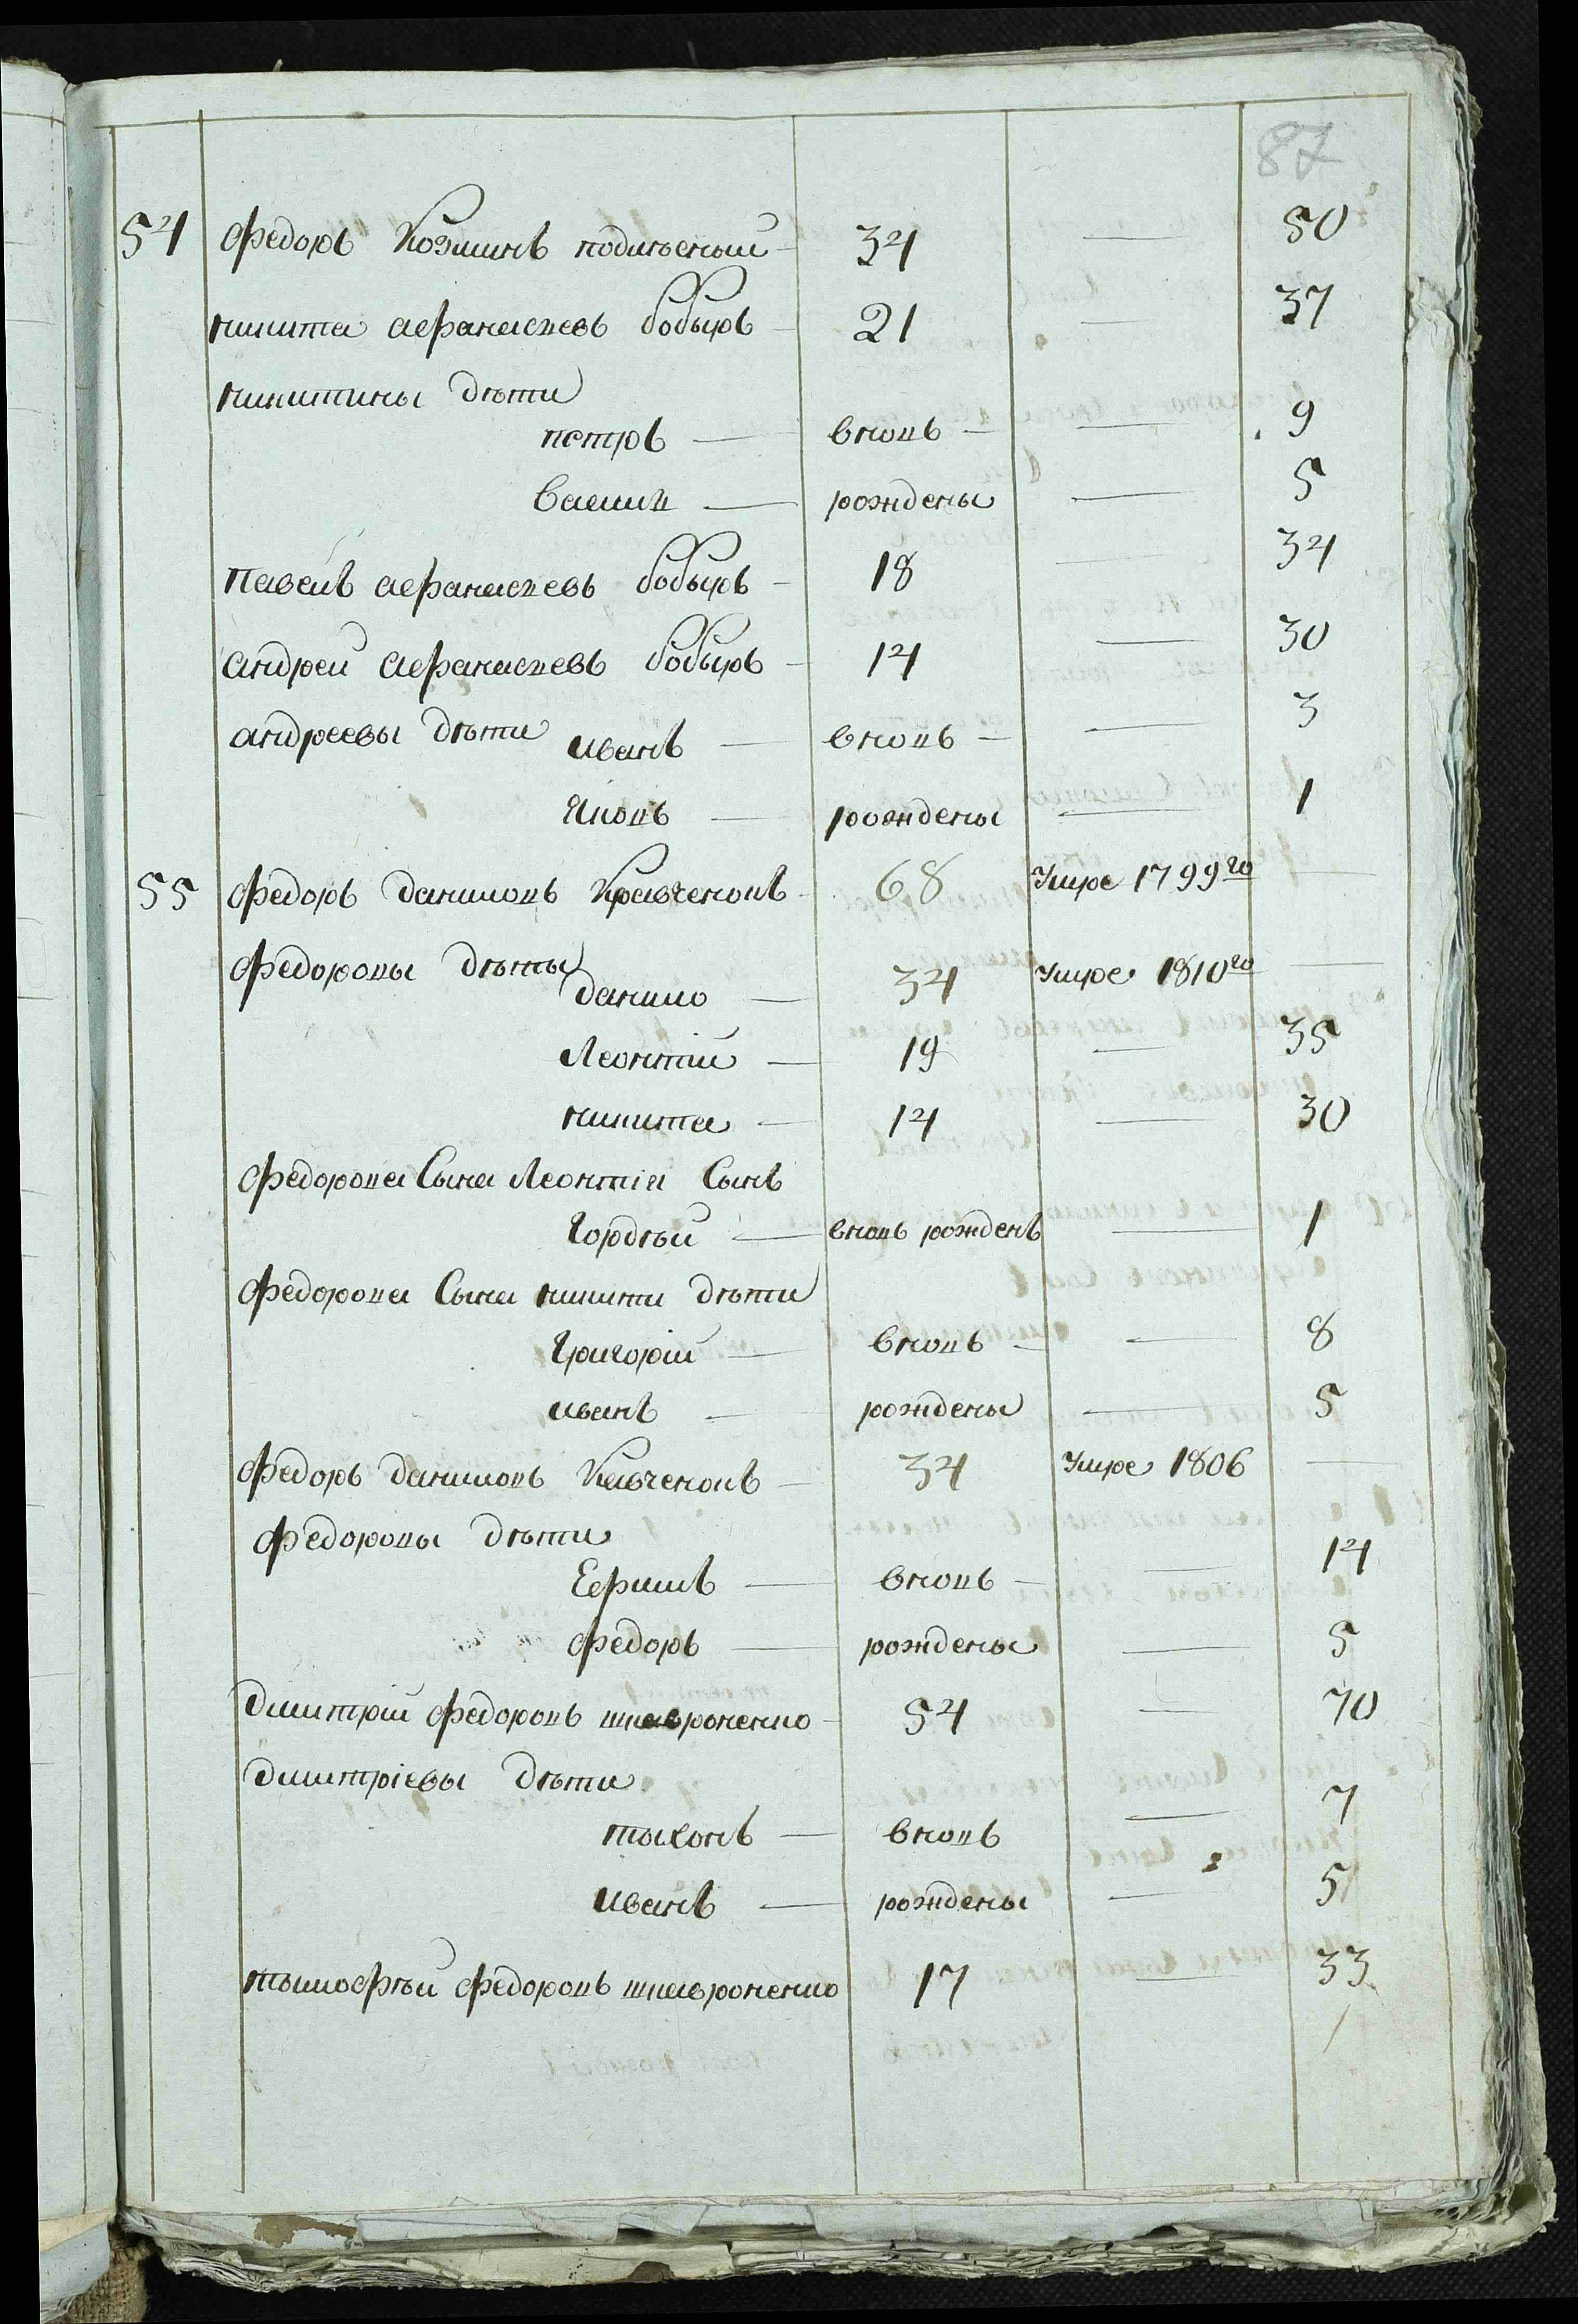 87
54 Федоръ Козминъ подлѣсный 34 — 50
никита афанасиевъ бобыръ 21 — 37
никитины дѣти
петръ — вновь — 9
василий — рождены — 5
павелъ афанасиевъ бобыръ 18 — 34
андрей афанасиевъ бобыръ 14 — 30
андреевы дѣти иванъ — вновь — 3
— рождены — 1
55 Федоръ даниловъ Кравченокъ 68 умре 1799го —
Федоровы дѣты
данило — 34 умре 1810го —
Леонтій — 19 — 35
никита — 14 — 30
Федорова Сына Леонтія Сынъ
Гордѣй — вновь рожденъ — 1
Федорова Сына никиты дѣти
Григорій — вновь — 8
иванъ — рождены — 5
Федоръ даниловъ Кравченокъ 34 умре 1806 —
Федоровы дѣти
Ефимъ — вновь — 14
Федоръ — рождены — 5
дмитрій Федоровъ шкавроненко 54 — 70
дмитріевы дѣти
тыхонъ — вновь — 7
иванъ — рождены — 5
тымофѣй Федоровъ шкавроненко 17 — 33